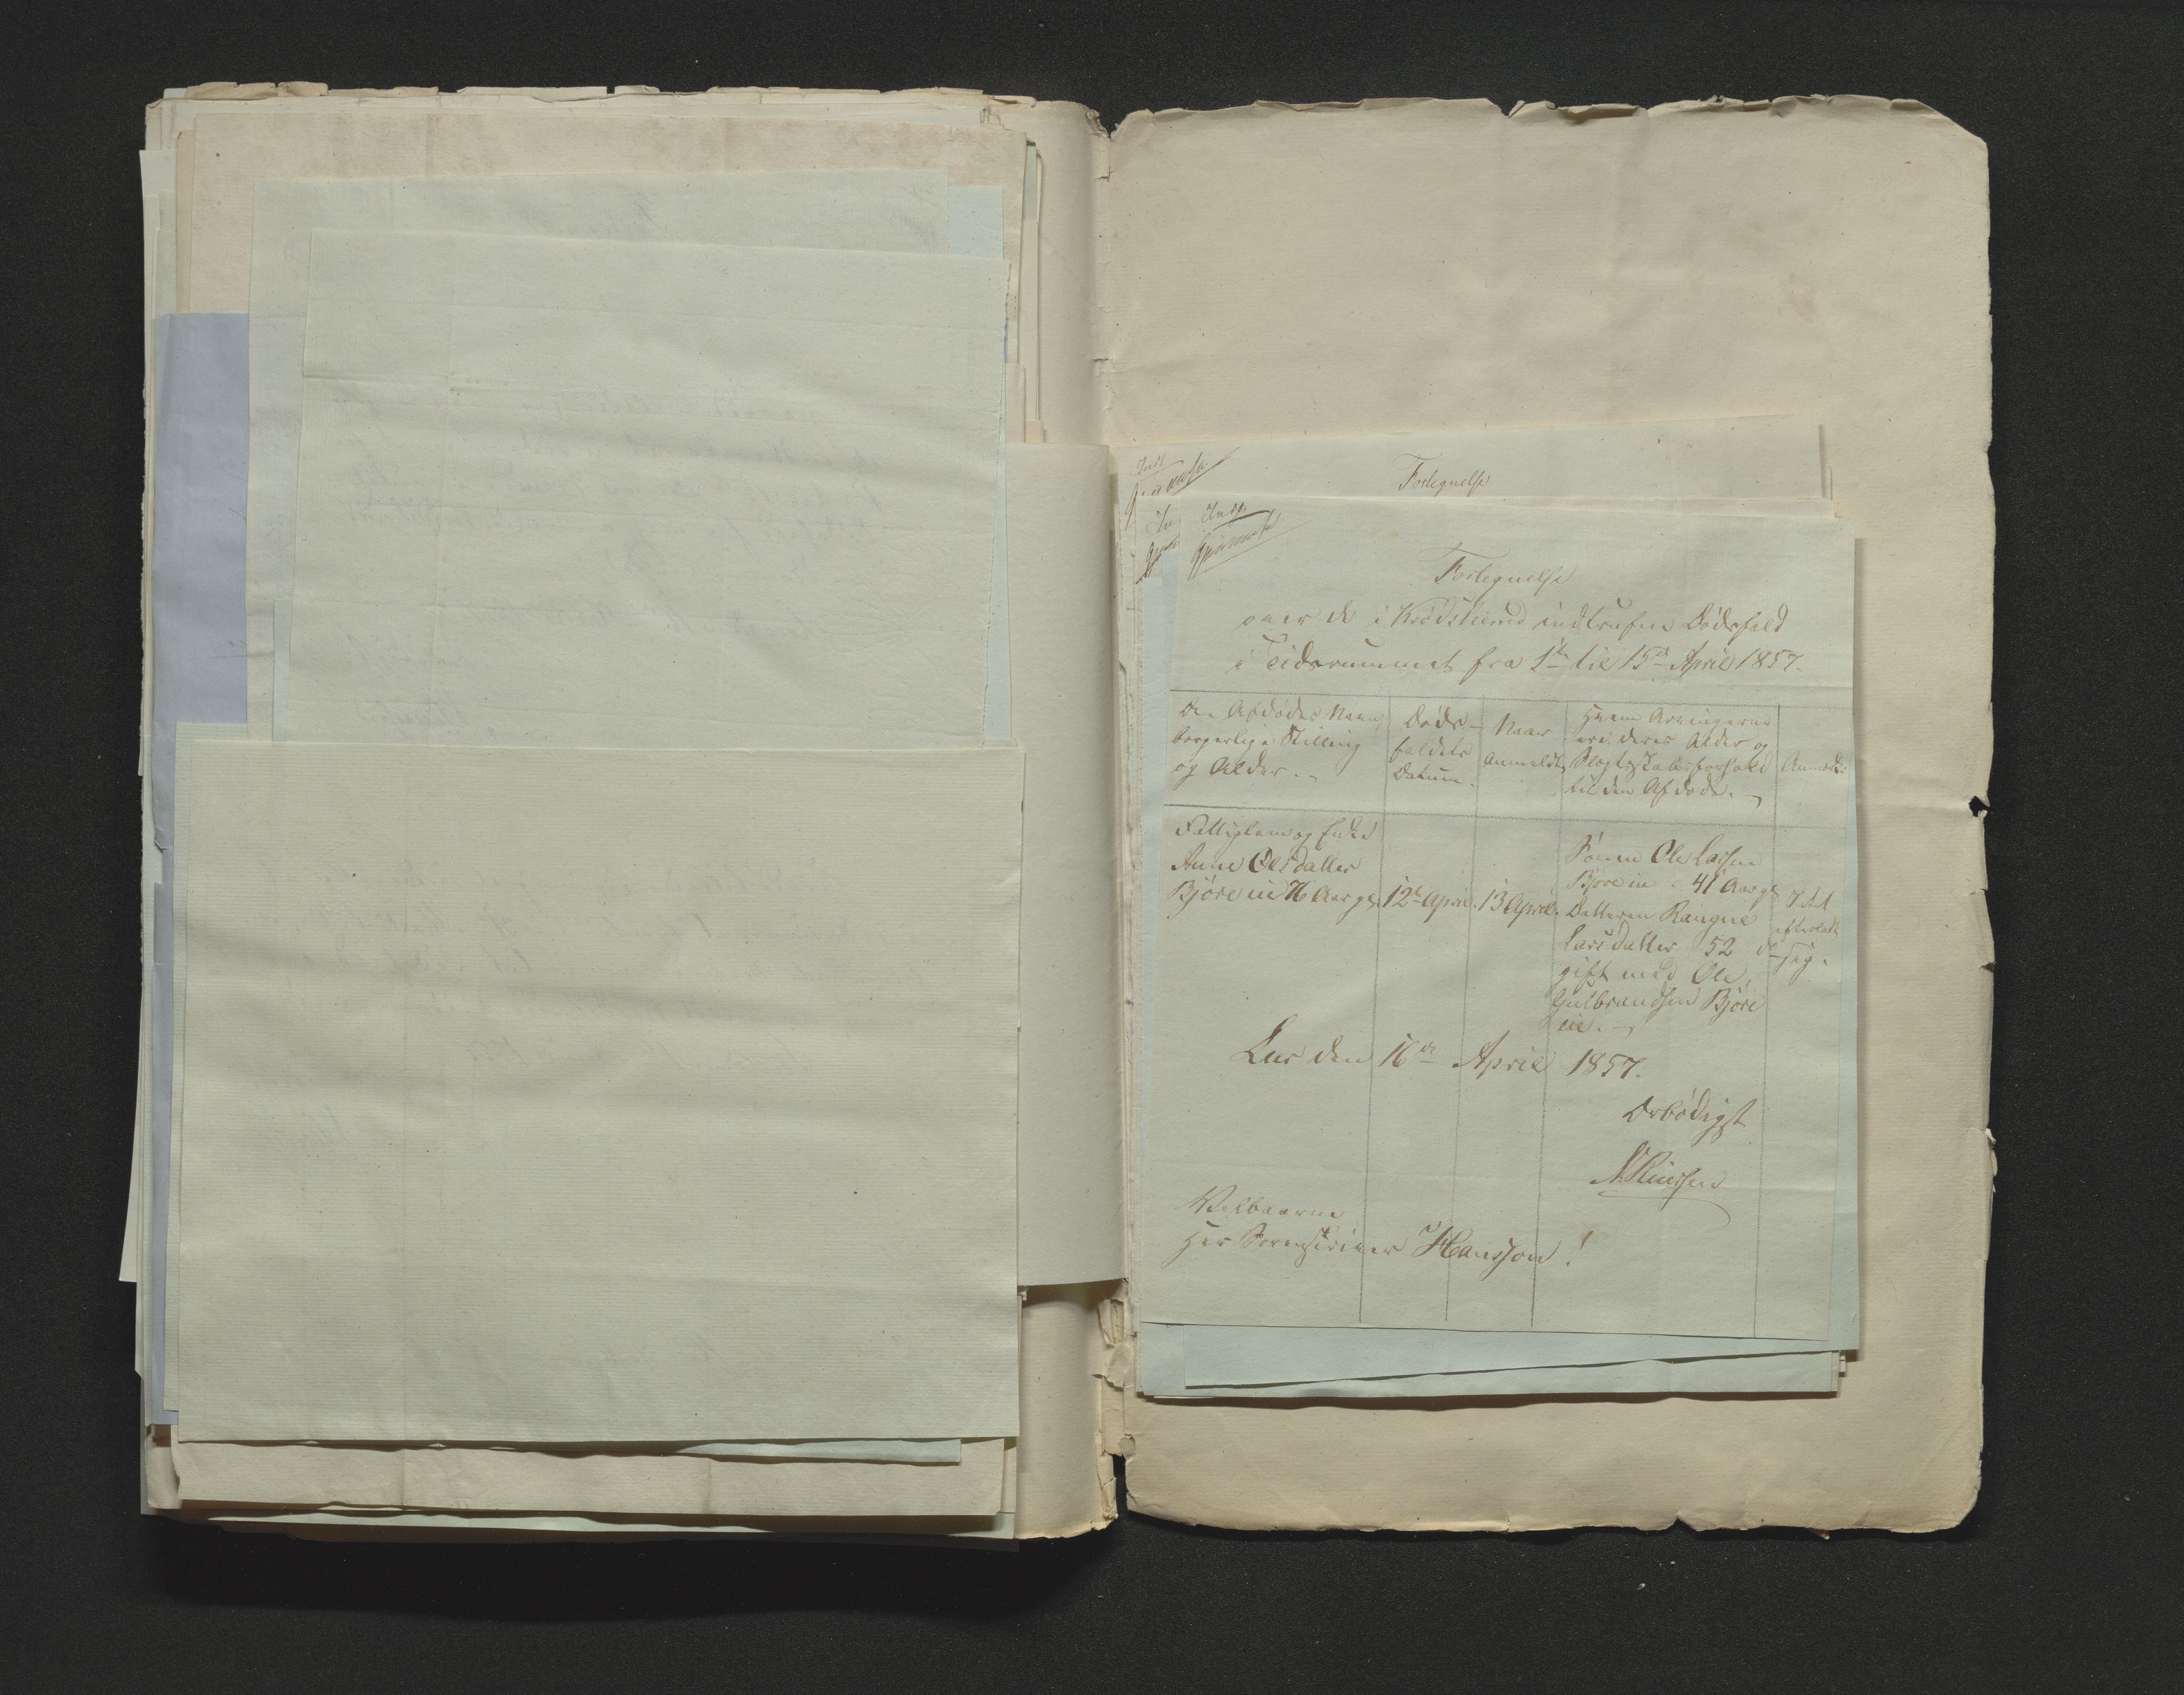 Fortegnelse
Fortegnelse
over de i Krødsherred indtrufne Dødsfald
i Tidsrummet fra 1te til 15de April 1857.
Den Afdødes Navn,
borgerlige Stilling
og Alder. -
Døds-
faldets
Datum.
Naar
Anmeldt
Hvem Arvingerne
ere, deres Alder og
Slægtskabsforhold
til den Afdøde. -
Anmærk:
Fattiglem og Enke
Anne Olsdatter
Bjøre eie 76 Aar gl.
12te April.
13 April.
Sønnen Ole Larsen
Bjøre eie. 41 Aar gl.
Datteren Rangne
Larsdatter 52 do
gift med Ole
Gulbrandsen Bjøre
eie. -
Intet
efterladt
sig.
Lur den 16de April 1857.
Ærbødigst
Velbaarne
Herr Sorenskriver Hansson!